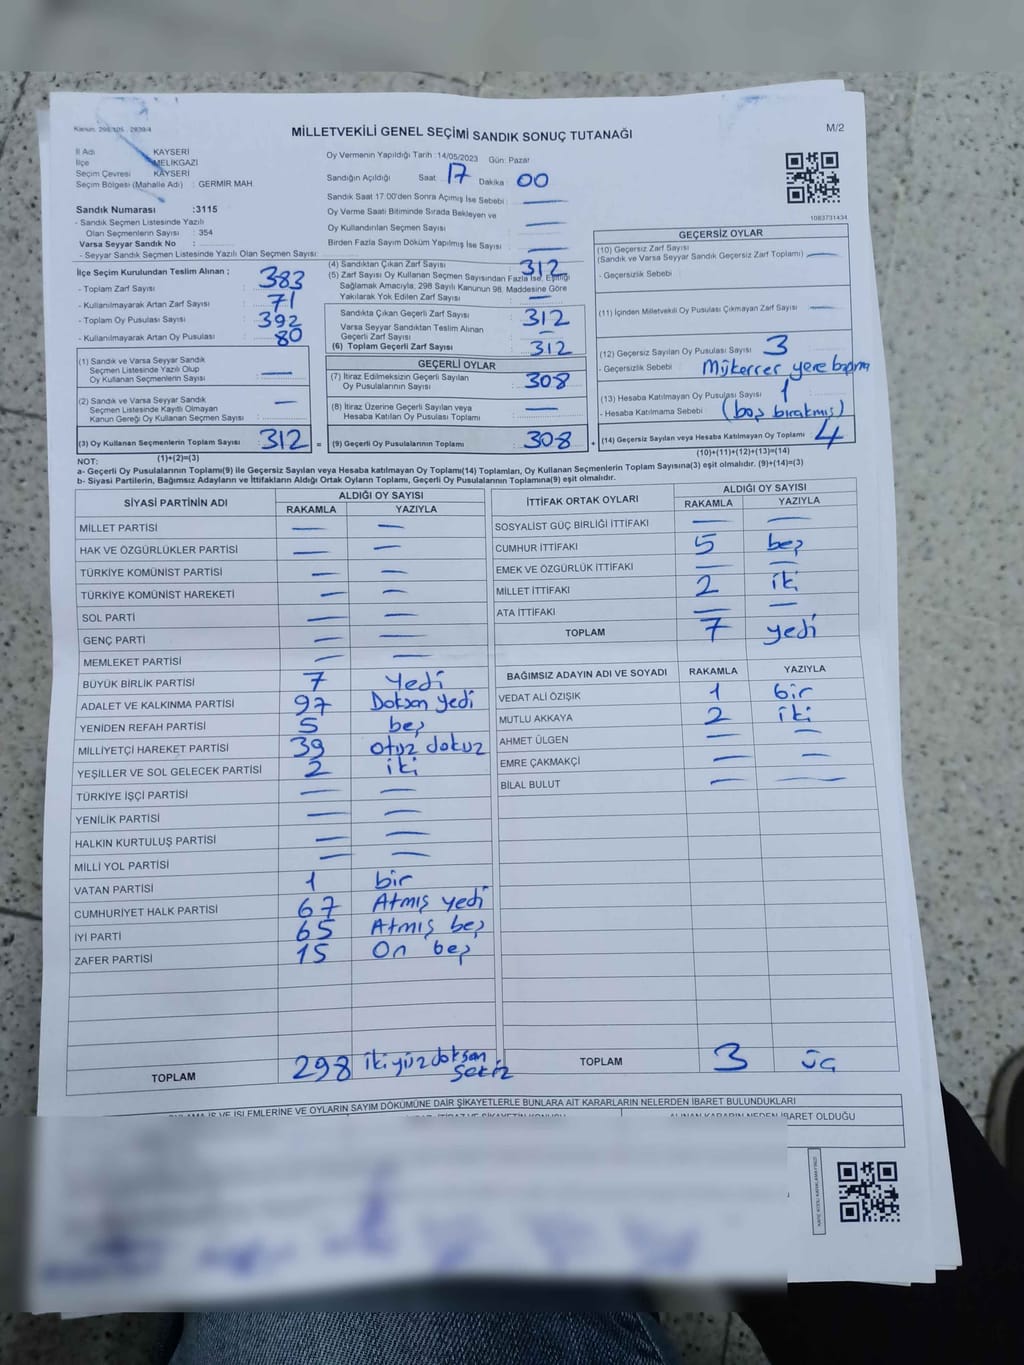 Kanun: 298/105 , 2839/4
MİLLETVEKİLİ GENEL SEÇİMİ SANDIK SONUÇ TUTANAĞI
M/2
İl Adı KAYSERİ
İlçe MELİKGAZİ
Seçim Çevresi KAYSERİ
Seçim Bölgesi (Mahalle Adı) : GERMİR MAH.
Sandık Numarası :3115
- Sandık Seçmen Listesinde Yazılı
Olan Seçmenlerin Sayısı : 354
Varsa Seyyar Sandık No :
- Seyyar Sandık Seçmen Listesinde Yazılı Olan Seçmen Sayısı:
Oy Vermenin Yapıldığı Tarih :14/05/2023 Gün: Pazar
Sandığın Açıldığı Saat 17 Dakika : 00
Sandık Saat 17:00'den Sonra Açımış İse Sebebi : —
Oy Verme Saati Bitiminde Sırada Bekleyen ve
Oy Kullandırılan Seçmen Sayısı : —
Birden Fazla Sayım Döküm Yapılmış İse Sayısı : —
1083731434
İlçe Seçim Kurulundan Teslim Alınan ;
- Toplam Zarf Sayısı : 383
- Kullanılmayarak Artan Zarf Sayısı : 71
- Toplam Oy Pusulası Sayısı : 392
- Kullanılmayarak Artan Oy Pusulası : 80
(1) Sandık ve Varsa Seyyar Sandık
Seçmen Listesinde Yazılı Olup
Oy Kullanan Seçmenlerin Sayısı : —
(2) Sandık ve Varsa Seyyar Sandık
Seçmen Listesinde Kayıtlı Olmayan
Kanun Gereği Oy Kullanan Seçmen Sayısı : —
(3) Oy Kullanan Seçmenlerin Toplam Sayısı : 312 =
(1)+(2)=(3)
(4) Sandıktan Çıkan Zarf Sayısı : 312
(5) Zarf Sayısı Oy Kullanan Seçmen Sayısından Fazla İse, Eşitliği
Sağlamak Amacıyla, 298 Sayılı Kanunun 98. Maddesine Göre
Yakılarak Yok Edilen Zarf Sayısı : —
Sandıkta Çıkan Geçerli Zarf Sayısı : 312
Varsa Seyyar Sandıktan Teslim Alınan
Geçerli Zarf Sayısı : —
(6) Toplam Geçerli Zarf Sayısı : 312
GEÇERLİ OYLAR
(7) İtiraz Edilmeksizin Geçerli Sayılan
Oy Pusulalarının Sayısı : 308
(8) İtiraz Üzerine Geçerli Sayılan veya
Hesaba Katılan Oy Pusulası Toplamı : —
(9) Geçerli Oy Pusulalarının Toplamı : 308 +
GEÇERSİZ OYLAR
(10) Geçersiz Zarf Sayısı
(Sandık ve Varsa Seyyar Sandık Geçersiz Zarf Toplamı) : —
- Geçersizlik Sebebi :
(11) İçinden Milletvekili Oy Pusulası Çıkmayan Zarf Sayısı : —
(12) Geçersiz Sayılan Oy Pusulası Sayısı : 3
- Geçersizlik Sebebi : Mükerrer yere basma
(13) Hesaba Katılmayan Oy Pusulası Sayısı : 1
- Hesaba Katılmama Sebebi : (boş bırakmış)
(14) Geçersiz Sayılan veya Hesaba Katılmayan Oy Toplamı : 4
(10)+(11)+(12)+(13)=(14)
NOT:
a- Geçerli Oy Pusulalarının Toplamı(9) ile Geçersiz Sayılan veya Hesaba katılmayan Oy Toplamı(14) Toplamları, Oy Kullanan Seçmenlerin Toplam Sayısına(3) eşit olmalıdır. (9)+(14)=(3)
b- Siyasi Partilerin, Bağımsız Adayların ve İttifakların Aldığı Ortak Oyların Toplamı, Geçerli Oy Pusulalarının Toplamına(9) eşit olmalıdır.
SİYASİ PARTİNİN ADI ALDIĞI OY SAYISI
RAKAMLA YAZIYLA
MİLLET PARTİSİ — —
HAK VE ÖZGÜRLÜKLER PARTİSİ — —
TÜRKİYE KOMÜNİST PARTİSİ — —
TÜRKİYE KOMÜNİST HAREKETİ — —
SOL PARTİ — —
GENÇ PARTİ — —
MEMLEKET PARTİSİ — —
BÜYÜK BİRLİK PARTİSİ 7 Yedi
ADALET VE KALKINMA PARTİSİ 97 Doksan yedi
YENİDEN REFAH PARTİSİ 5 beş
MİLLİYETÇİ HAREKET PARTİSİ 39 otuz dokuz
YEŞİLLER VE SOL GELECEK PARTİSİ 2 iki
TÜRKİYE İŞÇİ PARTİSİ — —
YENİLİK PARTİSİ — —
HALKIN KURTULUŞ PARTİSİ — —
MİLLİ YOL PARTİSİ — —
VATAN PARTİSİ 1 bir
CUMHURİYET HALK PARTİSİ 67 Atmış yedi
İYİ PARTİ 65 Atmış beş
ZAFER PARTİSİ 15 On beş
TOPLAM 298 iki yüz doksan
sekiz
İTTİFAK ORTAK OYLARI ALDIĞI OY SAYISI
RAKAMLA YAZIYLA
SOSYALİST GÜÇ BİRLİĞİ İTTİFAKI — —
CUMHUR İTTİFAKI 5 beş
EMEK VE ÖZGÜRLÜK İTTİFAKI — —
MİLLET İTTİFAKI 2 iki
ATA İTTİFAKI — —
TOPLAM 7 yedi
BAĞIMSIZ ADAYIN ADI VE SOYADI RAKAMLA YAZIYLA
VEDAT ALİ ÖZIŞIK 1 bir
MUTLU AKKAYA 2 iki
AHMET ÜLGEN — —
EMRE ÇAKMAKÇİ — —
BİLAL BULUT — —
TOPLAM 3 üç
İŞ VE İŞLEMLERİNE VE OYLARIN SAYIM DÖKÜMÜNE DAİR ŞİKAYETLERLE BUNLARA AİT KARARLARIN NELERDEN İBARET BULUNDUKLARI
ALINAN KARARIN NEDEN İBARET OLDUĞU